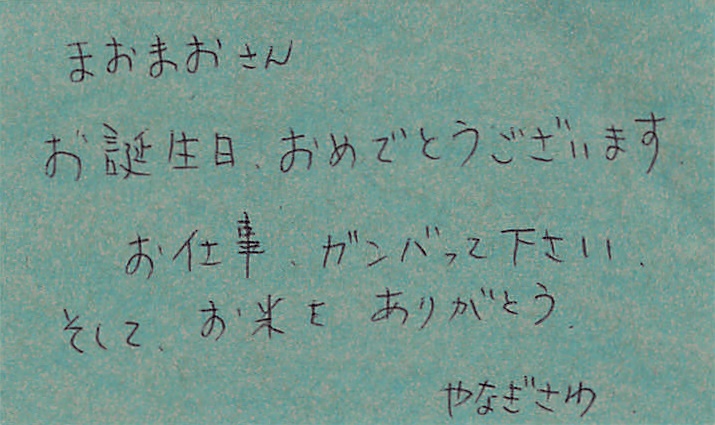 まおまおさん
お誕生日、おめでとうございます.
お仕事、ガンバって下さい.
そして、お米を ありがとう.
やなぎさわ